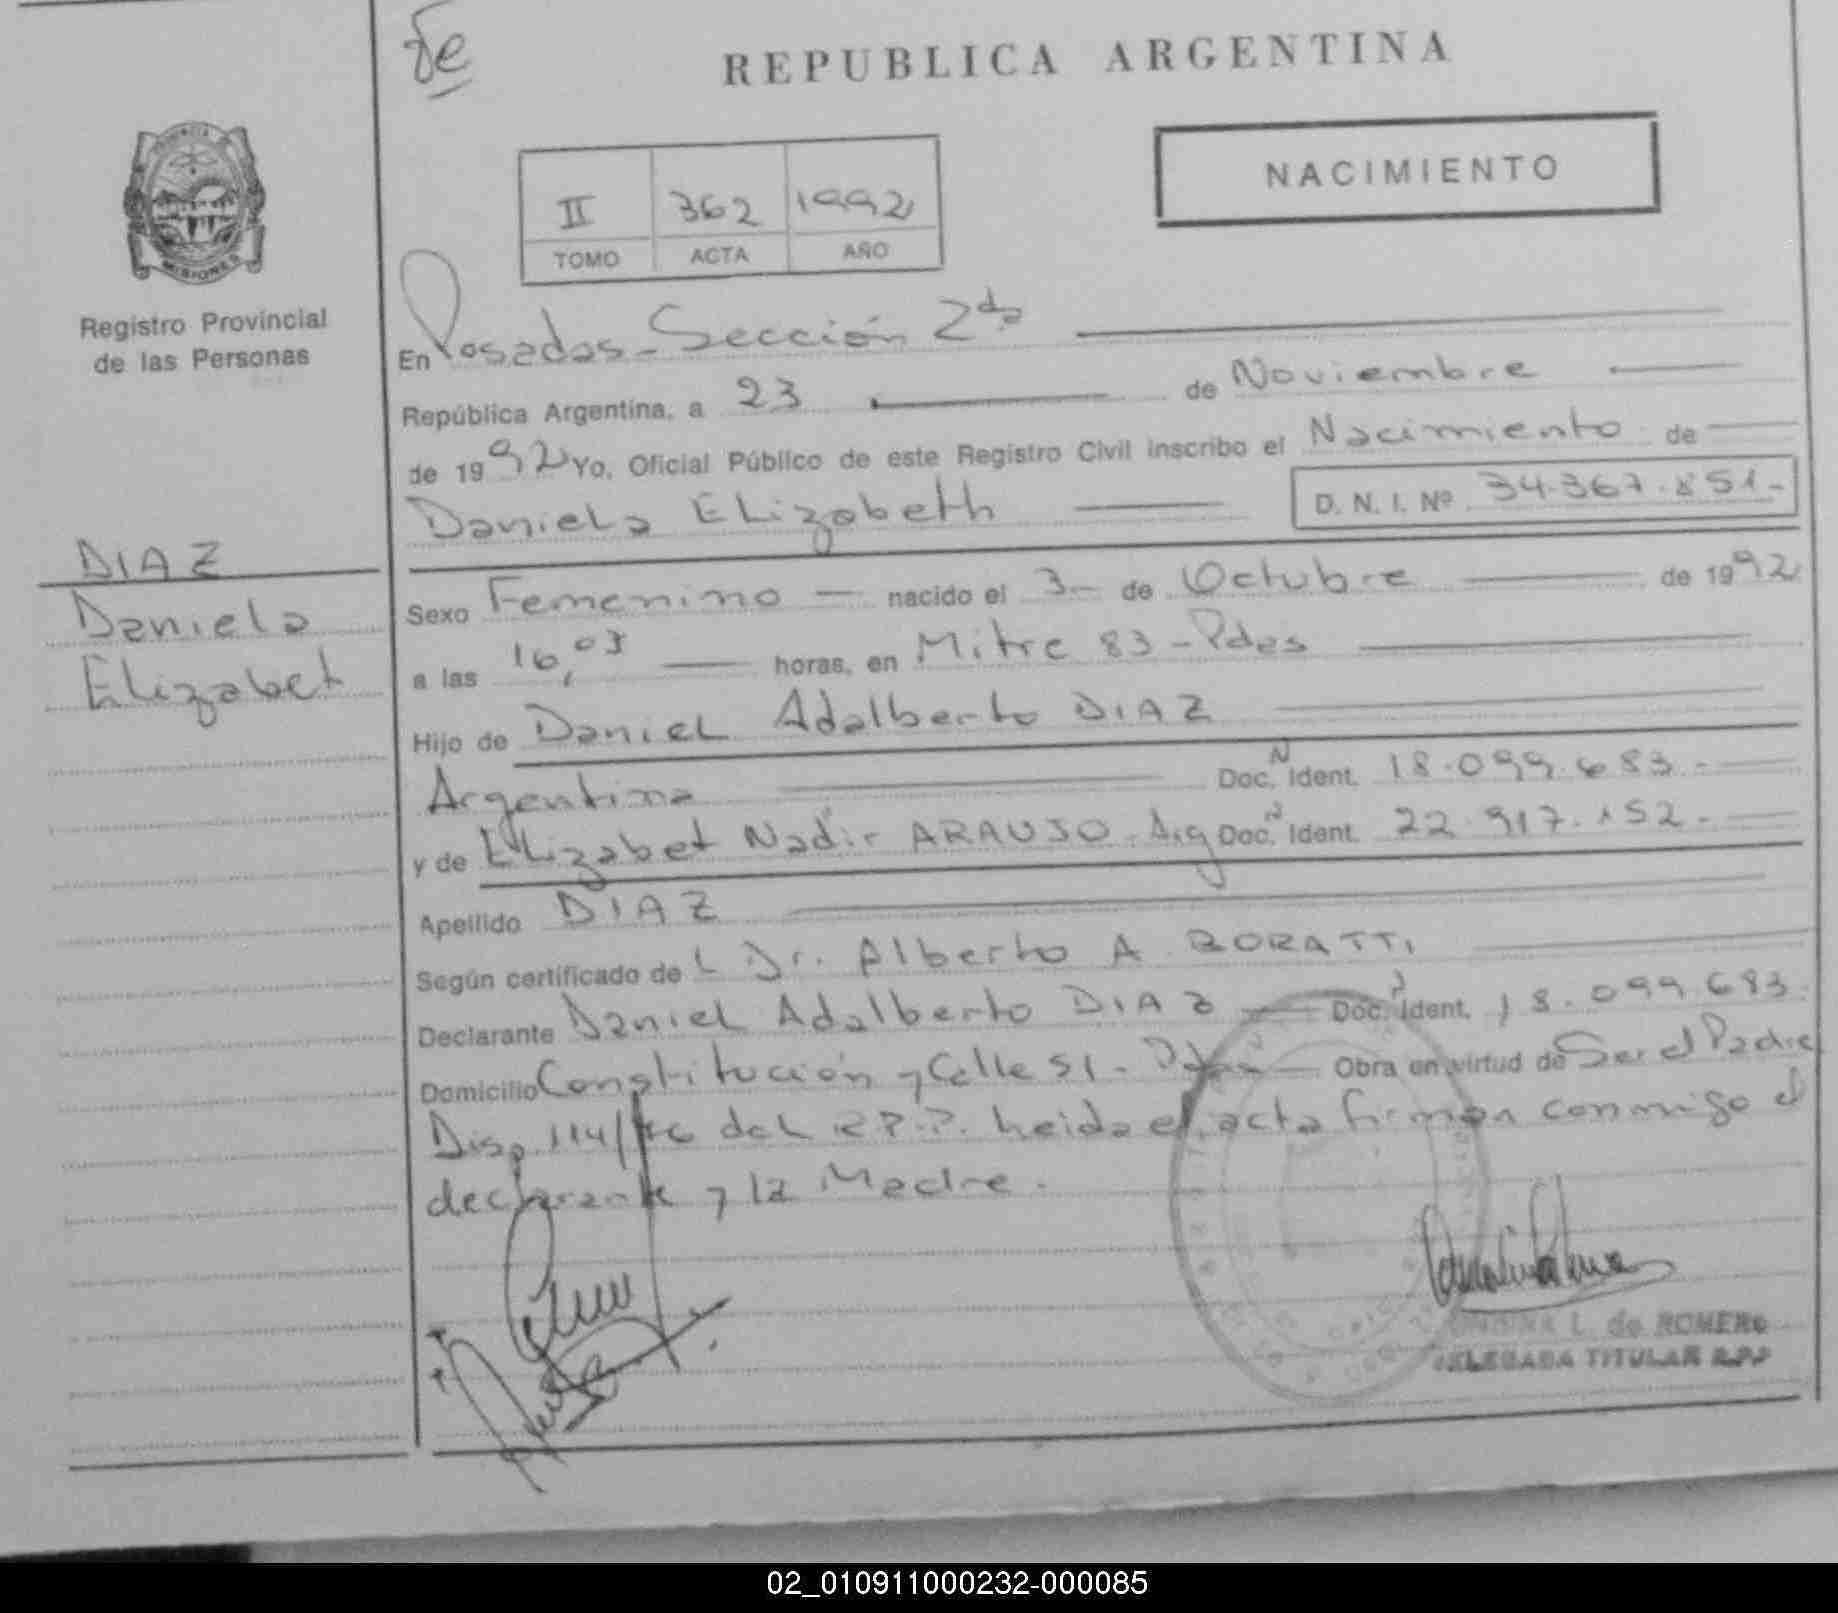 REPUBLICA ARGENTINA
NACIMIENTO
II 362 1992
TOMO ACTA AÑO
PROVINCIA
MISIONES
Registro Provincial
de las Personas
DIAZ
Daniela
Elizabet
En Posadas - Sección 2da
República Argentina, a 23 de Noviembre
de 1992 Yo, Oficial Público de este Registro Civil inscribo el Nacimiento de
Daniela Elizabeth D. N. I. Nº 34.367.851.-
Sexo Femenino — nacido el 3 - de Octubre de 1992
a las 16,03 horas, en Mitre 83 - Pdas
Hijo de Daniel Adalberto DIAZ
Argentina Doc. N Ident. 18.099.683.-
y de Elizabet Nadir ARAUJO - Arg Doc. N Ident. 22.917.152.-
Apellido DIAZ
Según certificado de L Dr. Alberto A. BORATTI
Declarante Daniel Adalberto DIAZ — Doc. Ident. 18.099.683.
Domicilio Constitución y Calle 51 - Obra en virtud de Ser el Padre
Disp 114/76 del R.P.P. Leida el acta firman conmigo el
declarante y la Madre.
L. de ROMERO
DELEGADA TITULAR R.P.P
02_010911000232-000085